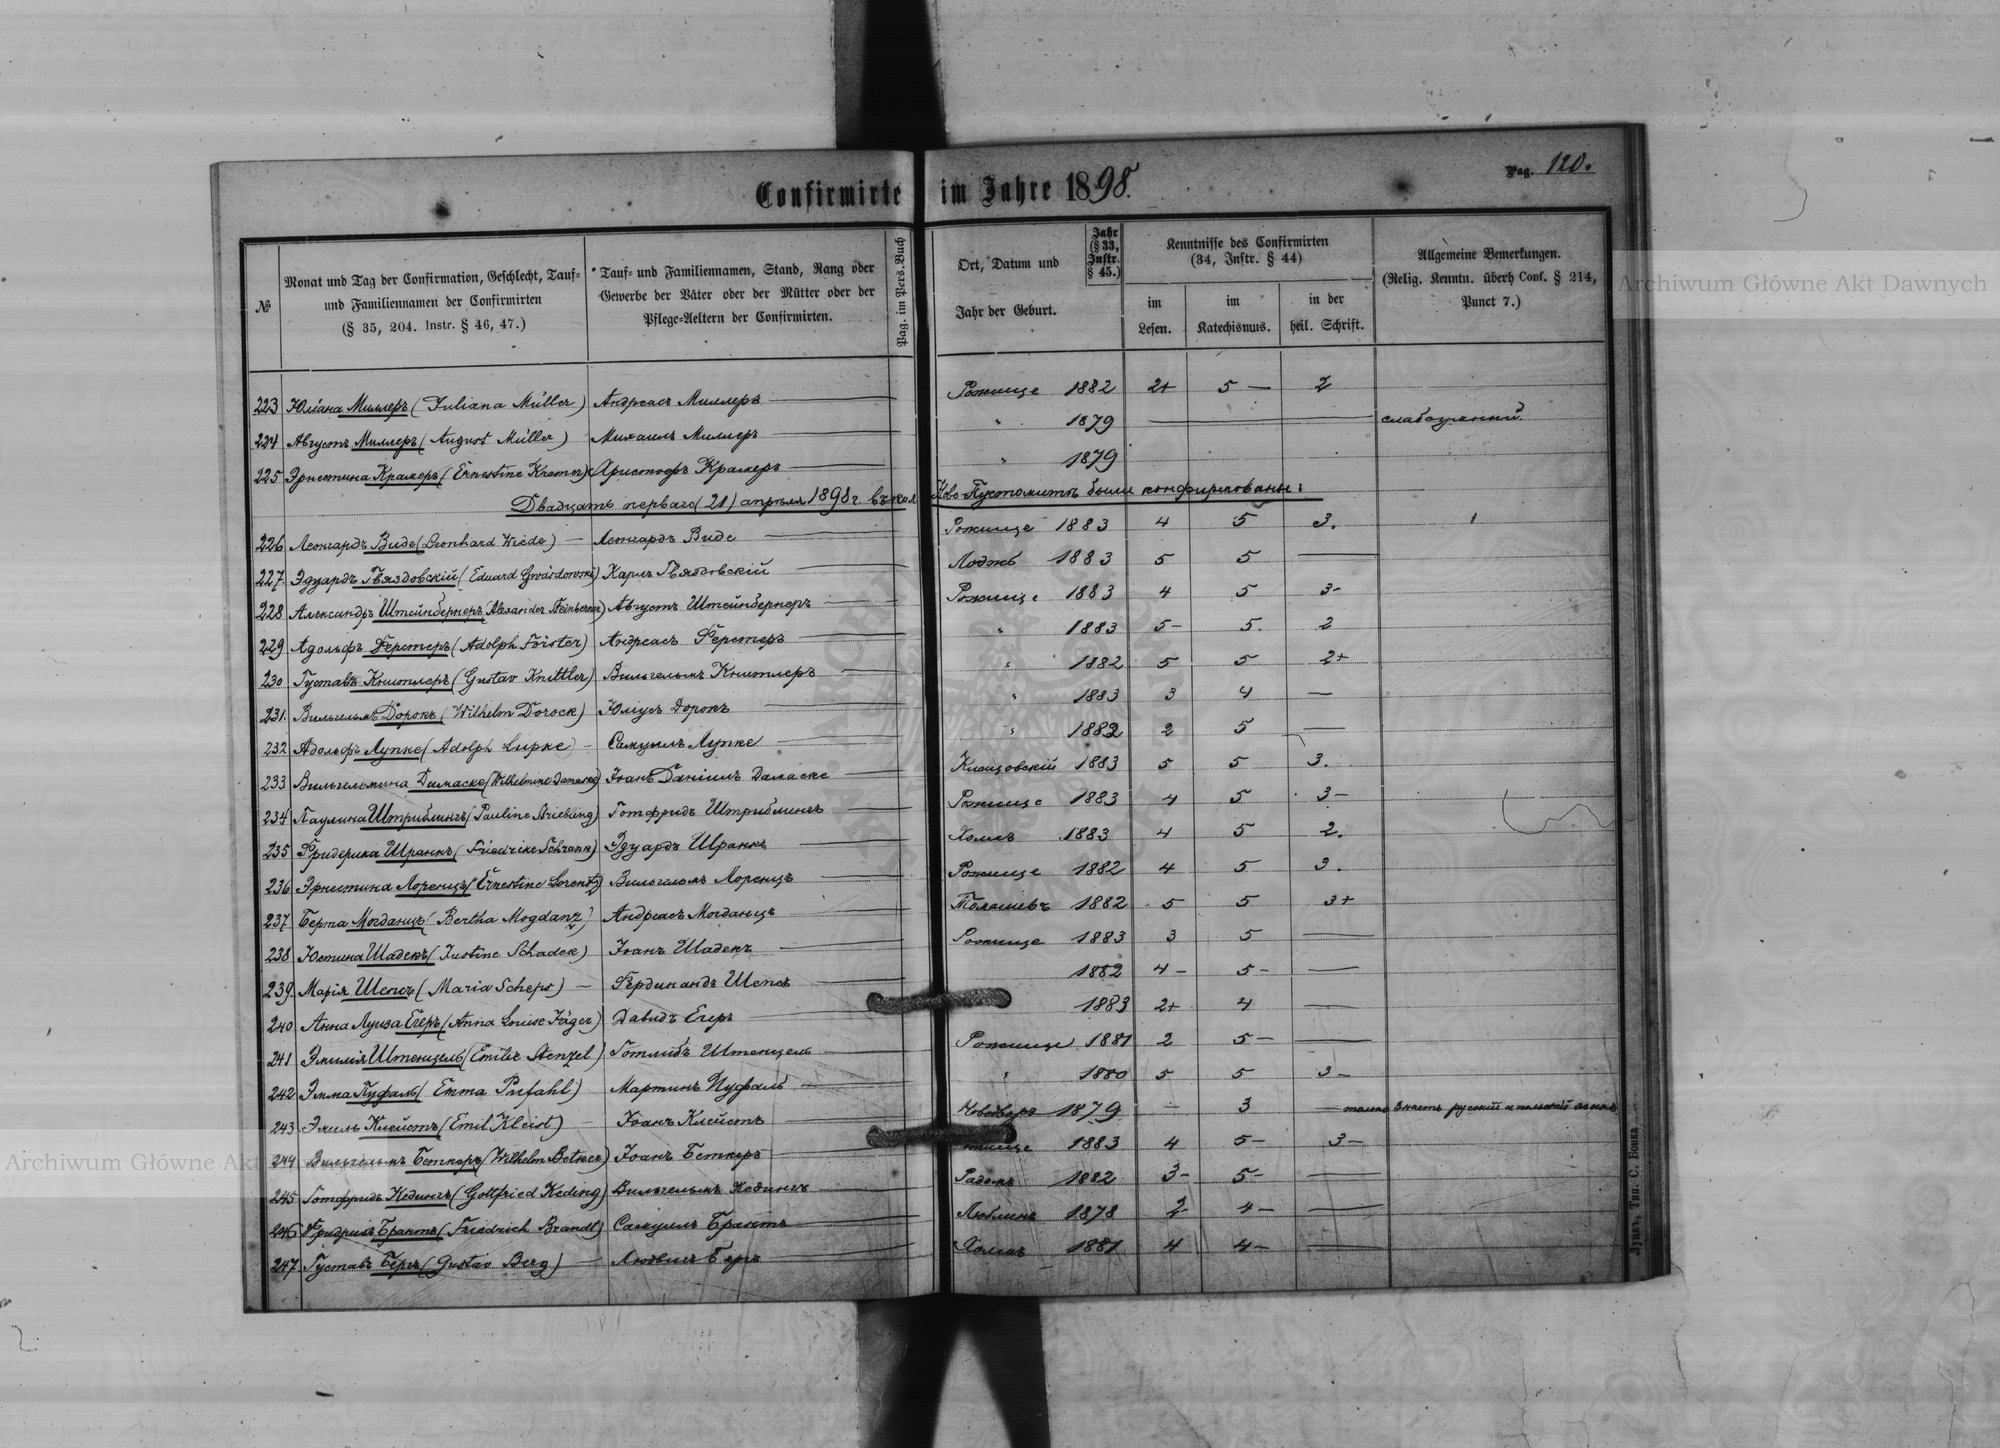 Confirmirte im Jahre 1898.
Pag. 120.
№
Monat und Tag der Confirmation, Geschlecht, Tauf- und Familiennamen der Confirmirten (§ 35, 204. Instr. § 46, 47.)
Tauf- und Familiennamen, Stand, Rang oder Gewerbe der Väter oder der Mütter oder der Pflege-Aeltern der Confirmirten.
Pag. im Pers.-Buch
Ort, Datum und Jahr der Geburt.
Jahr (§ 33, Instr. § 45.)
Kenntnisse des Confirmirten (34, Instr. § 44)
im Lesen.
im Katechismus.
in der heil. Schrift.
Allgemeine Bemerkungen. (Relig. Kenntn. überh Conf. § 214, Punct 7.)
223 Юлiана Миллеръ (Juliana Müller) Андреасъ Миллеръ Рожище 1882 2+ 5— 2
224 Августъ Миллеръ (August Müller) Михаилъ Миллеръ " 1879 — слабоумный.
225 Эрнестина Крамеръ (Ernestine Kramer) Христофъ Крамеръ " 1879
Двадцать перваго (21) апрѣля 1898 г. въ кол. Ново-Пустомитѣ были конфирмованы:
226 Леонгардъ Виде (Leonhard Wiede) — Леонгардъ Виде Рожище 1883 4 5 3.
227 Эдуардъ Гвяздовскiй (Eduard Gwiasdowski) Карлъ Гвяздовскiй Лодзь 1883 5 5 —
228 Александръ Штейнбернеръ (Alexander Steinberner) Августъ Штейнбернеръ Рожище 1883 4 5 3-
229 Адольфъ Ферстеръ (Adolph Förster) Андреасъ Ферстеръ " 1883 5- 5. 2
230 Густавъ Книтлеръ (Gustav Knittler) Вильгельмъ Книтлеръ " 1882 5 5 2+
231. Вильгельмъ Дорокъ (Wilhelm Dorock) Юлiусъ Дорокъ " 1883 3 4 —
232 Адольфъ Лупке (Adolph Lupke) — Самуилъ Лупке " 1882 2 5 —
233 Вильгельмина Дамаске (Wilhelmine Damaske) Iоанъ Данiилъ Дамаске 1883 5 5 3.
234 Паулина Штриблингъ (Pauline Striebling) Готфридъ Штриблингъ Рожище 1883 4 5 3-
235 Фридерика Шранкъ (Friedrike Schrank) Эдуардъ Шранкъ Холмъ 1883 4 5 2.
236 Эрнестина Лоренцъ (Ernestine Lorentz) Вильгельмъ Лоренцъ Рожище 1882 4 5 3.
237 Берта Могданцъ (Bertha Mogdanz) Андреасъ Могданцъ 1882 5 5 3+
238 Юстина Шадекъ (Justine Schadek) Iоанъ Шадекъ Рожище 1883 3 5 —
239. Марiя Шепсъ (Maria Scheps) — Фердинандъ Шепсъ 1882 4- 5- —
240 Анна Луиза Егеръ (Anna Louise Jäger) Давидъ Егеръ 1883 2+ 4 —
241 Эмилiя Штенцель (Emilie Stenzel) Готлибъ Штенцель Рожище 1881 2 5- —
242 Эмма Пуфаль (Emma Pufahl) Мартинъ Пуфаль " 1880 5 5 3-
243 Эмиль Клейстъ (Emil Kleist) — Iоанъ Клейстъ Новодворъ 1879 — 3 — только знаетъ русскiй и польскiй языкъ
244 Вильгельмъ Беткеръ (Wilhelm Betker) Iоанъ Беткеръ Рожище 1883 4 5- 3-
245 Готфридъ Кедингъ (Gottfried Keding) Вильгельмъ Кедингъ Радомъ 1882 3- 5- —
246 Фридрихъ Брантъ (Friedrich Brandt) Самуилъ Брантъ Люблинъ 1878 2 4- —
247. Густавъ Бергъ (Gustav Berg) — Людвигъ Бергъ Холмъ 1881 4 4- —
Луцкъ, Тип. С. Бонка
Archiwum Główne Akt Dawnych
Archiwum Główne Akt